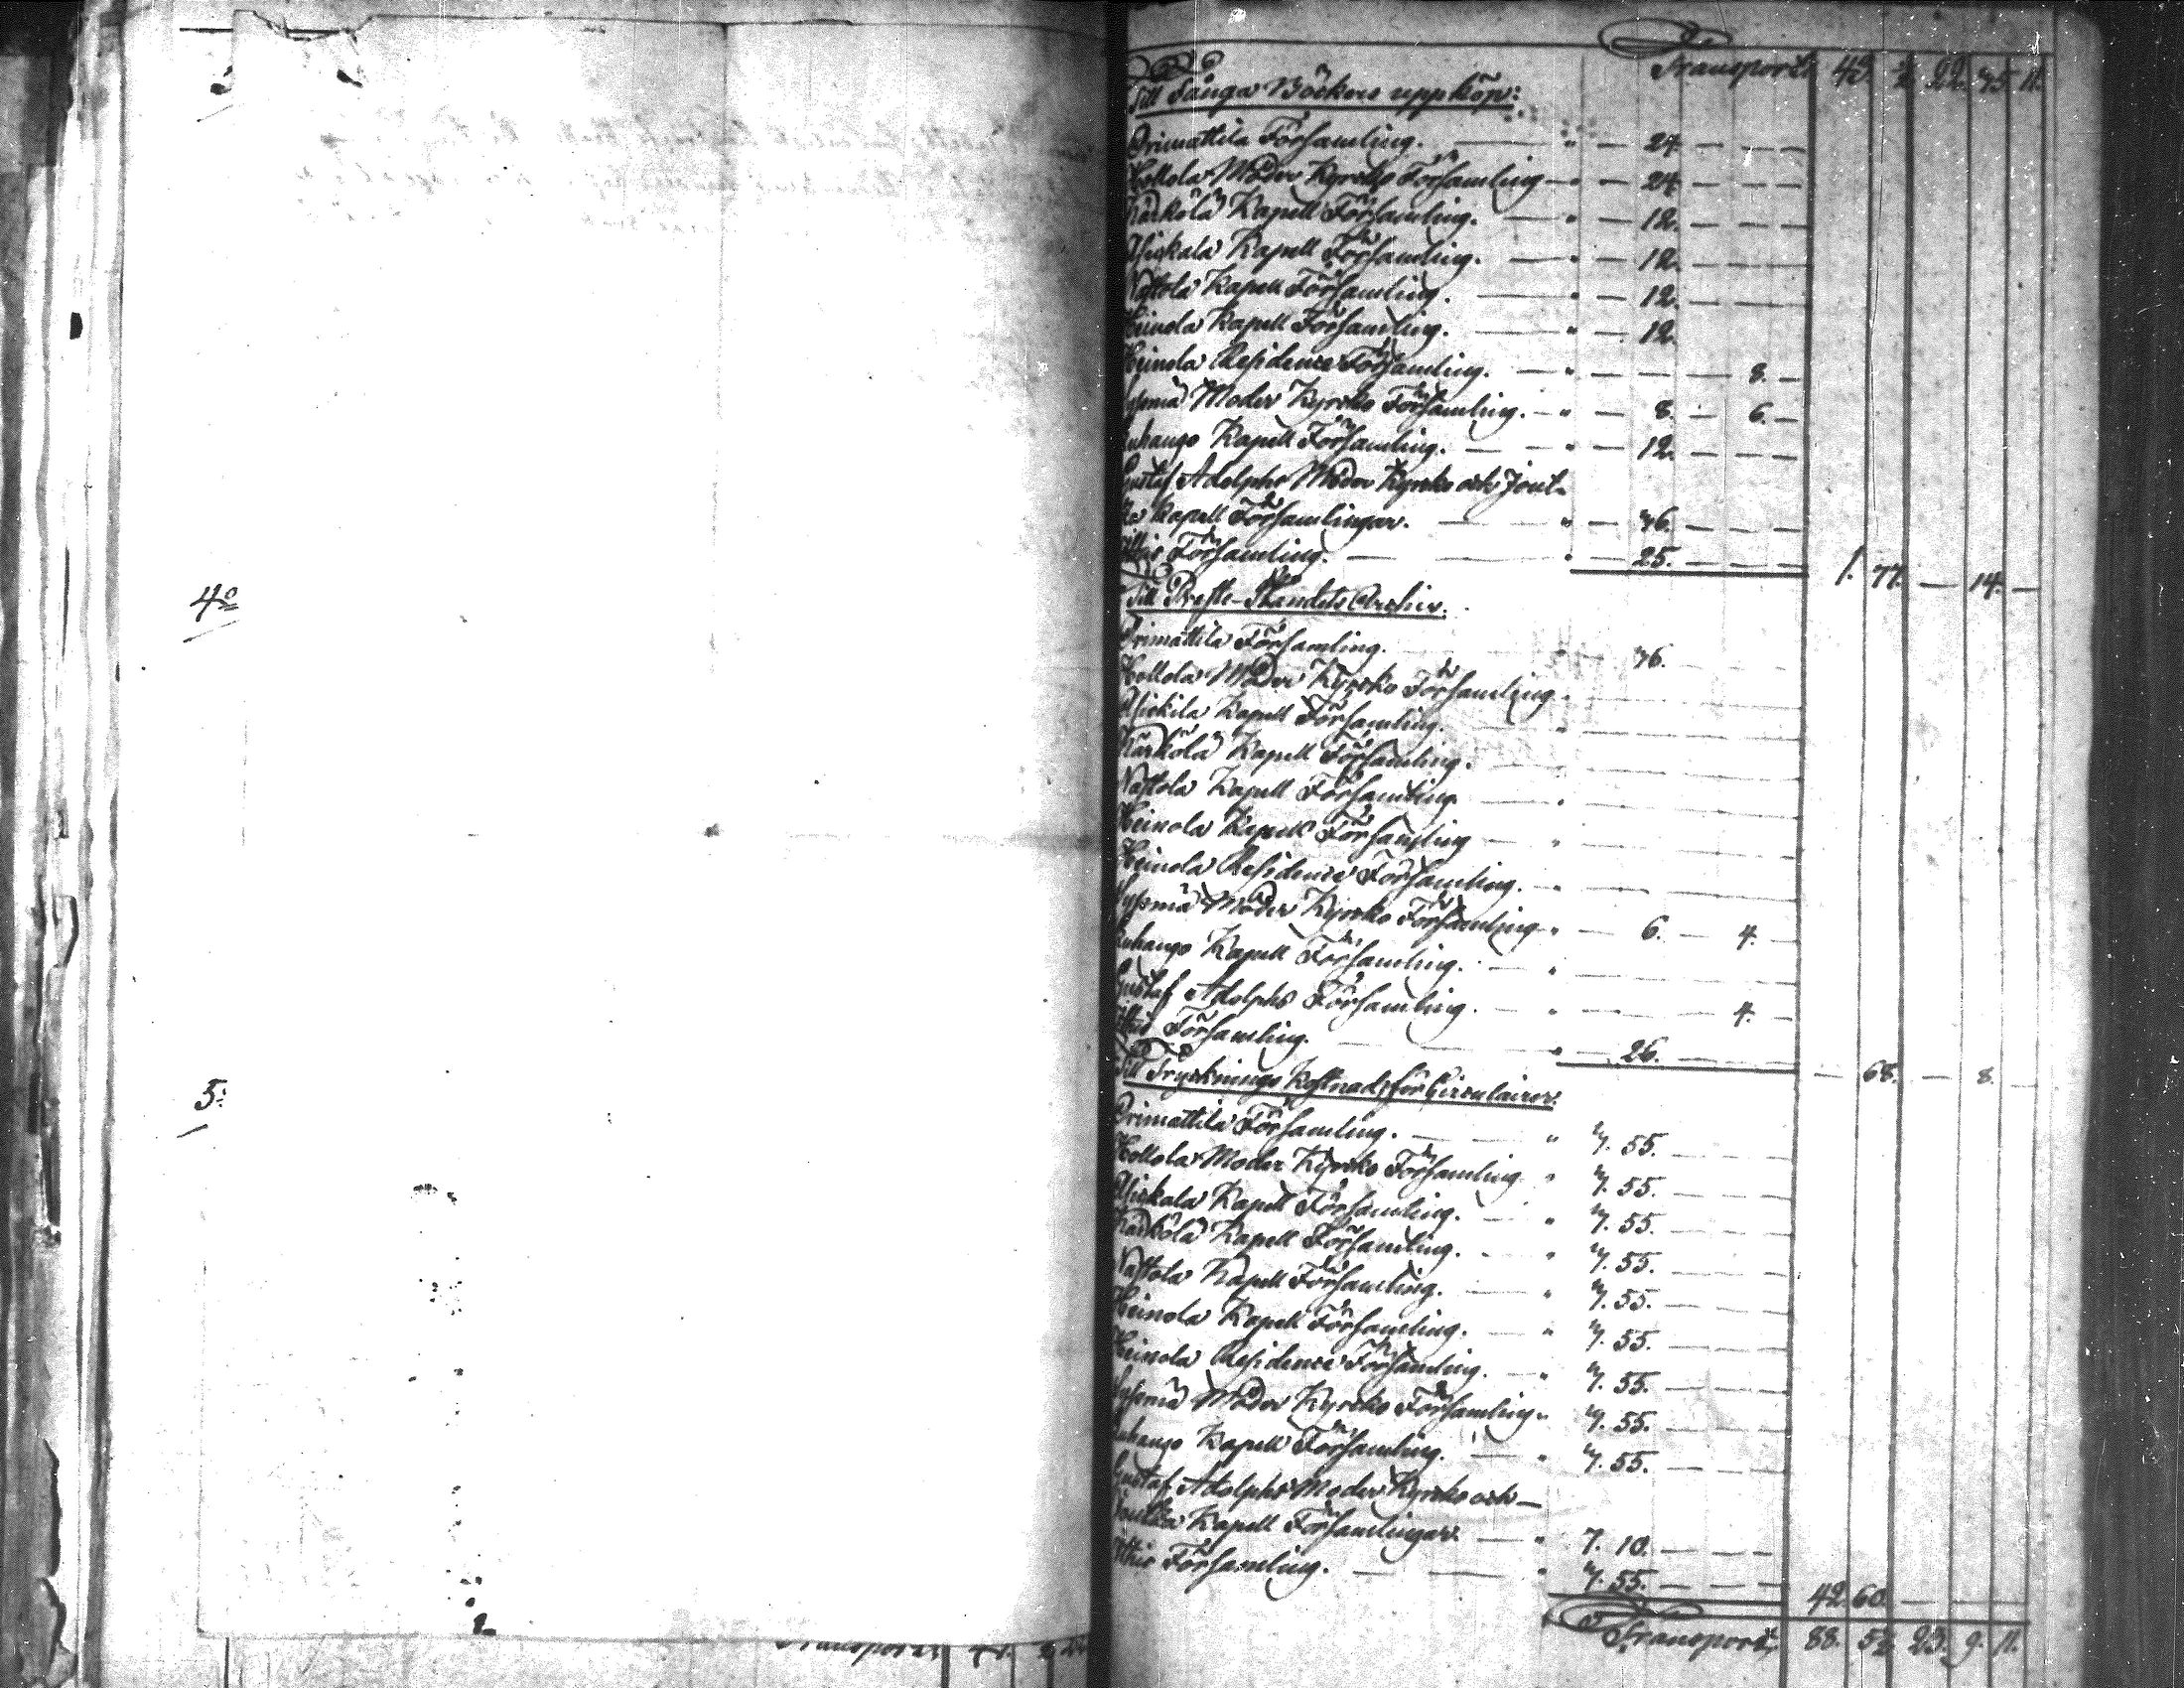 4o
5:
Transport
Transport 43. 2. 22. 45. 11.
Till Fånga Böckers uppköp:
Orimattila Församling. — " — 24 — — —
Hollola Moder Kyrko Församling — " — 24 — — —
Kärkölä Kapell Församling. — " — 12. — — —
Asickala Kapell Församling. — " — 12. — — —
Nastola Kapell Församling. — " — 12. — — —
Heinola Kapell Församling. — " — 12.
Heinola Residence Församling. — " — — — 8. —
Sysmä Moder Kyrko Församling. — " — 8. — 6. —
Luhango Kapell Församling. — " — 12. — — —
Gustaf Adolphs Moder Kyrko och Jout-
sa Kapell Församlingar. — " — — — —
Församling. — " — 25. — — — 1. 77. — 14. —
Till Preste-Ståndets Archiv.
Orimattila Församling.
Hollola Moder Kyrko Församling. "
Asickila Kapell Församling. "
Kärkölä Kapell Församling. "
Nastola Kapell Församling — "
Heinola Kapell Församling — "
Heinola Residence Församling. — "
Sysmä Moder Kyrko Församling " — 6. — 4. —
Luhango Kapell Församling. — "
Gustaf Adolphs Församling. — " — — — 4. —
Församling. — " — 26. — — — — 68. — 8. —
Till Trycknings Kostnad för Circulairer.
Orimattila Församling. — " 55. — — —
Hollola Moder Kyrko Församling " 55. — — —
Asickala Kapell Församling. — " 55. — — —
Kärkölä Kapell Församling. — " 55. — — —
Nastola Kapell Församling. — " 55. — — —
Heinola Kapell Församling. — " 55. — — —
Heinola Residence Församling. — " 55. — — —
Sysmä Moder Kyrko Församling. " 55. — — —
Luhango Kapell Församling. — " 55. — — —
Gustaf Adolphs Moder Kyrko och —
Joutsa Kapell Församlingar. — " 7. 10. — — —
Församling. — " 55. — — — 42. 60. — — —
Transport 88. 23. 9. 11.